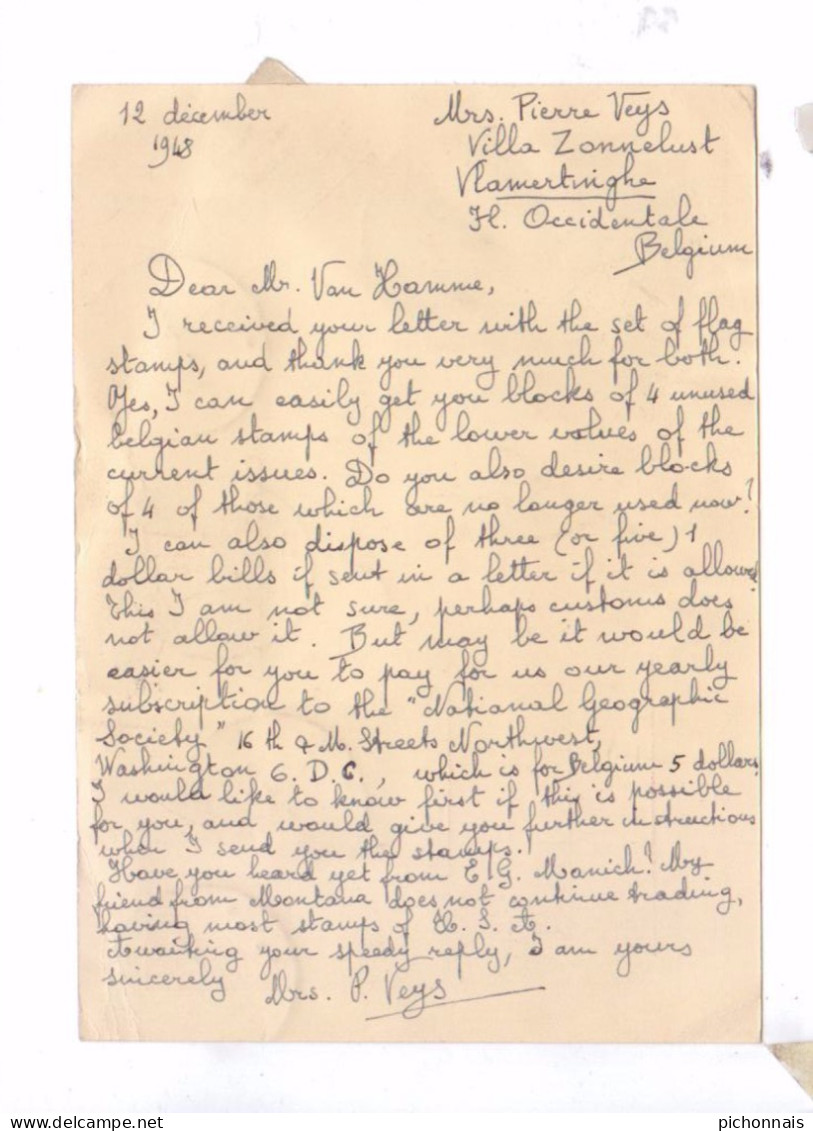 12 décember
1948
Mrs. Pierre Veys
Villa Zonnelust
Vlamertinghe
Fl. Occidentale
Belgium
Dear Mr. Van Hamme,
I received your letter with the set of flag
stamps, and thank you very much for both.
Yes, I can easily get you blocks of 4 unused
belgian stamps of the lower values of the
current issues. Do you also desire blocks
of 4 of those which are no longer used now?
I can also dispose of three (or five) 1
dollar bills if sent in a letter if it is allowed
this I am not sure, perhaps customs does
not allow it. But may be it would be
easier for you to pay for us our yearly
subscription to the "National Geographic
Society" 16 th & M. Streets Northwest,
Washington 6. D.C., which is for Belgium 5 dollars.
I would like to know first if this is possible
for you, and would give you further instructions
when I send you the stamps.
Have you heard yet from E. G. Manich? My
friend from Montana does not continue trading,
having most stamps of U. S. A.
Awaiting your speedy reply, I am yours
sincerely
Mrs. P. Veys
pichonnais